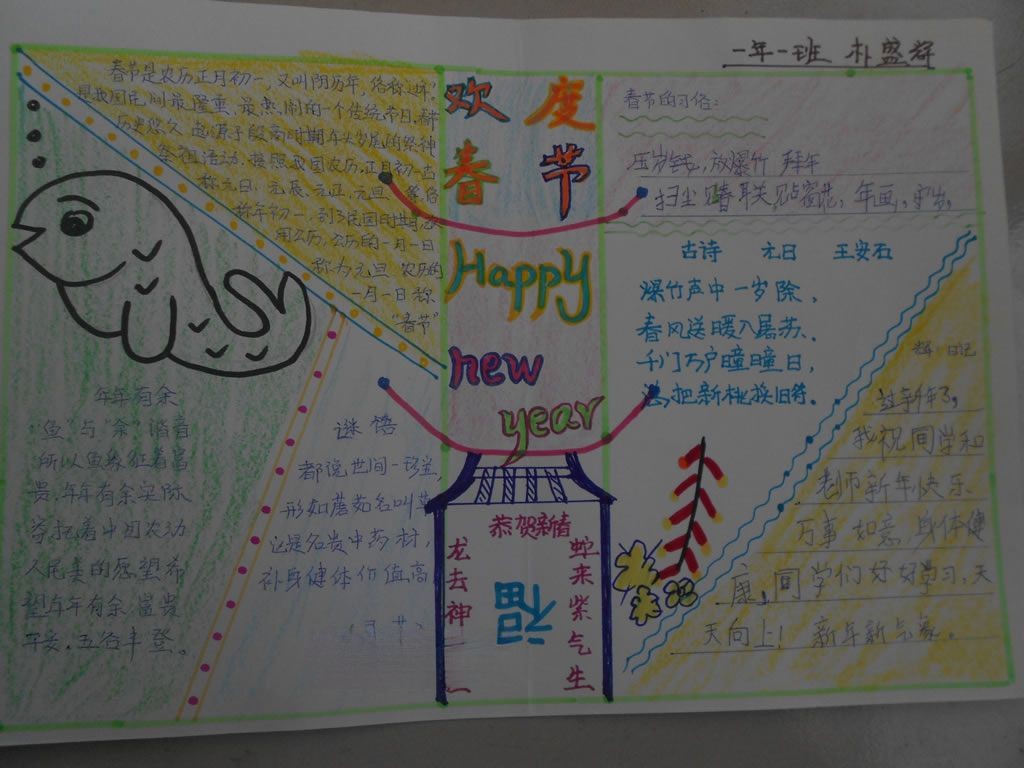 一年一班 朴盛群
春节是农历正月初一，又叫阴历年，俗称过年，
是我国民间最隆重、最热闹的一个传统节日。春节
历史悠久，起源于殷商时期年头岁尾的祭神
祭祖活动。按照我国农历，正月初一古
称元日、元辰、元正、元旦等，俗
称年初一，到了民国时期，改
用公历，公历的一月一日
称为元旦，农历的
一月一日称
“春节”
年年有余
“鱼”与“余”谐音
所以鱼象征着富
贵，年年有余实际
寄托着中国农动
人民美的愿望希
望年年有余，富贵
平安，五谷丰登。
谜语
都说世间一珍宝，
形如蘑菇名叫草
这是名贵中药材，
补身健体价值高
欢度
春节
Happy
new
year
恭贺新春
龙去神
福
蛇来紫气生
春节的习俗：
压岁钱，放爆竹 拜年
扫尘 贴春联 贴窗花，年画，守岁，
古诗 元日 王安石
爆竹声中一岁除，
春风送暖入屠苏。
千门万户瞳瞳日，
把新桃换旧符。
日记
过新年了，
我祝同学和
老师新年快乐、
万事如意、身体健
康，同学们好好学习，天
天向上！新年新气象。